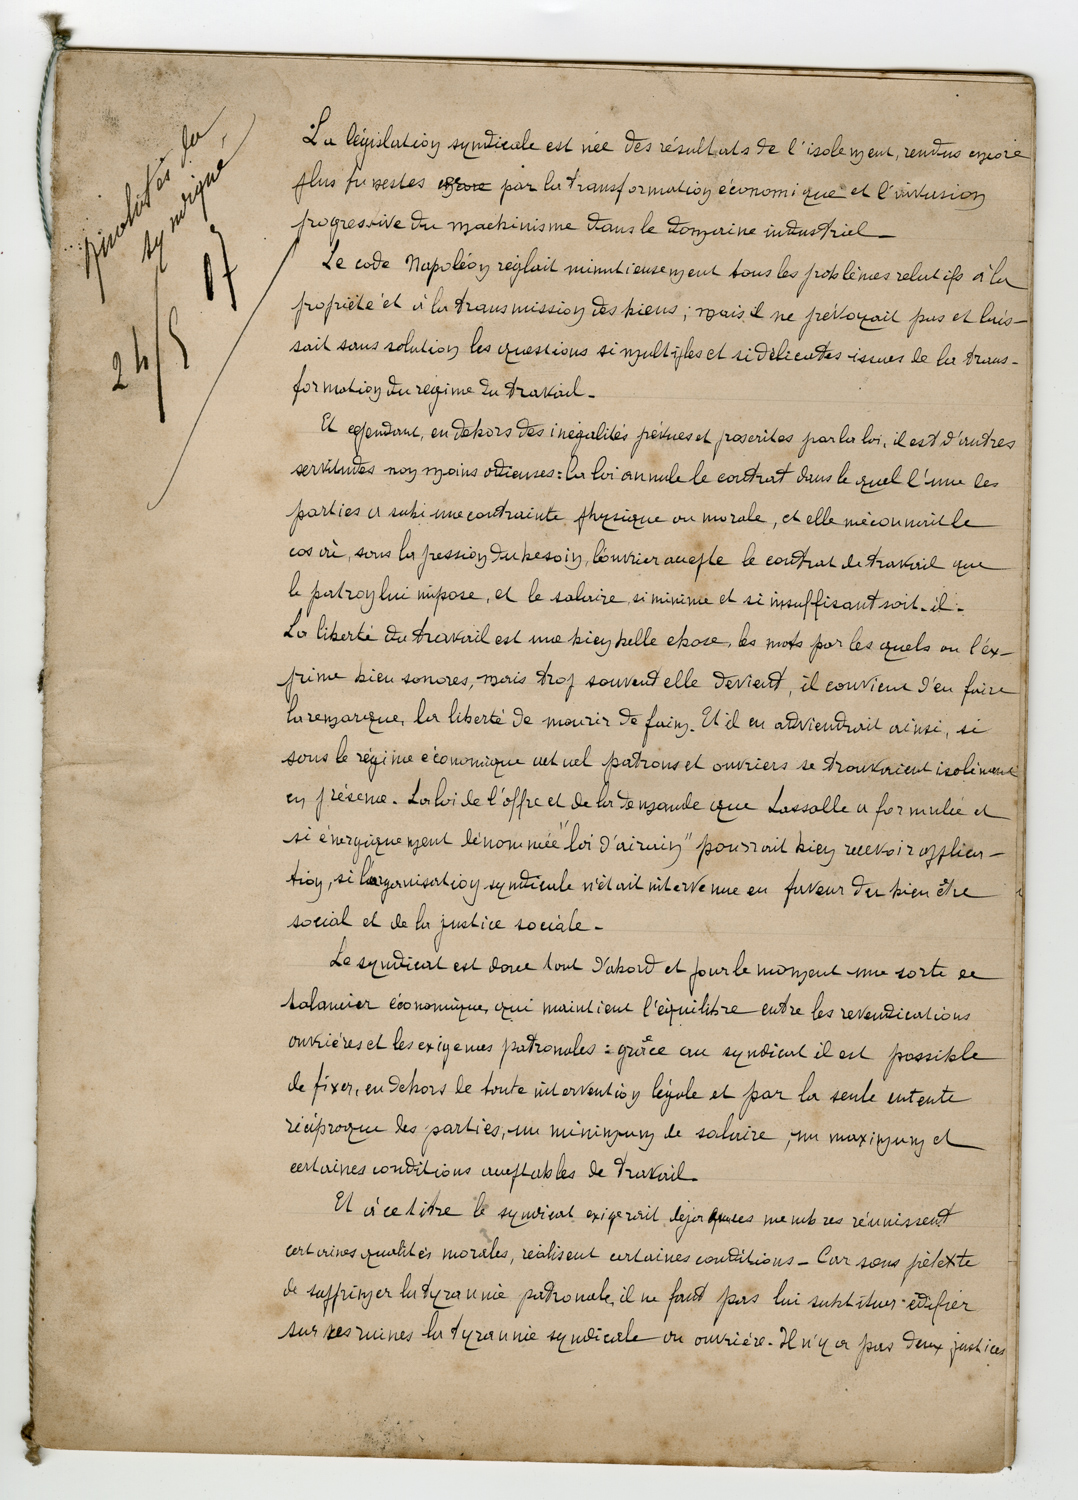 qualités du
syndiqué
24/5 07
La législation syndicale est née des résultats de l'isolement, rendus encore
plus funestes encore par la transformation économique et l'invasion
progressive du machinisme dans le domaine industriel_
Le code Napoléon réglait minutieusement tous les problèmes relatifs à la
propriété et à la transmission des biens ; mais il ne prévoyait pas et lais-
sait sans solution les questions si multiples et si délicates issues de la trans-
formation du régime du travail_
Et cependant, en dehors des inégalités prévues et proscrites par la loi, il est d'autres
servitudes non moins odieuses : la loi annule le contrat dans le quel l'une des
parties a subi une contrainte physique ou morale, et elle méconnait le
cas où, sous la pression du besoin, l'ouvrier accepte le contrat de travail que
le patron lui impose, et le salaire, si minime et si insuffisant soit-il_
La liberté du travail est une bien belle chose, les mots par les quels on l'ex-
prime bien sonores, mais trop souvent elle devient, il convient d'en faire
la remarque, la liberté de mourir de faim. Et il en adviendrait ainsi, si
sous le régime économique actuel patrons et ouvriers se trouvaient isolément
en présence. La loi de l'offre et de la demande que Lassalle a formulée et
si énergiquement dénommée "loi d'airain" pourrait bien recevoir applica-
tion, si l'organisation syndicale n'était intervenue en faveur du bien être
social et de la justice sociale_
Le syndicat est donc tout d'abord et pour le moment une sorte de
balancier économique, qui maintient l'équilibre entre les revendications
ouvrières et les exigences patronales : grâce au syndicat il est possible
de fixer, en dehors de toute intervention légale et par la seule entente
réciproque des parties, un minimum de salaire, un maximum et
certaines conditions acceptables de travail_
Et à ce titre le syndicat exigerait déjà que ses membres réunissent
certaines qualités morales, réalisent certaines conditions_ Car sous prétexte
de supprimer la tyrannie patronale, il ne faut pas lui substituer édifier
sur ses ruines la tyrannie syndicale ou ouvrière. Il n'y a pas deux justices